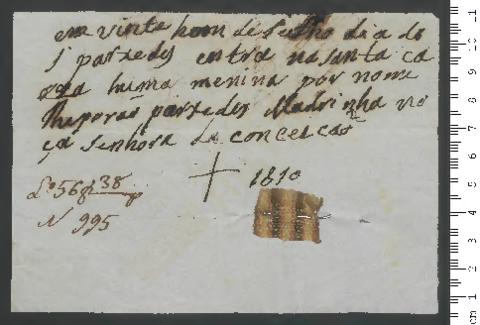 em vinta hom de Julho dia de
S parxedes entra na santa ca
oza huma menina por nome
theporas parxedes Madrinha no
ça senhora da conceicaõ
1810
Lº 56 f 138
N 995
cm 1 2 3 4 5 6 7 8 9 10 11